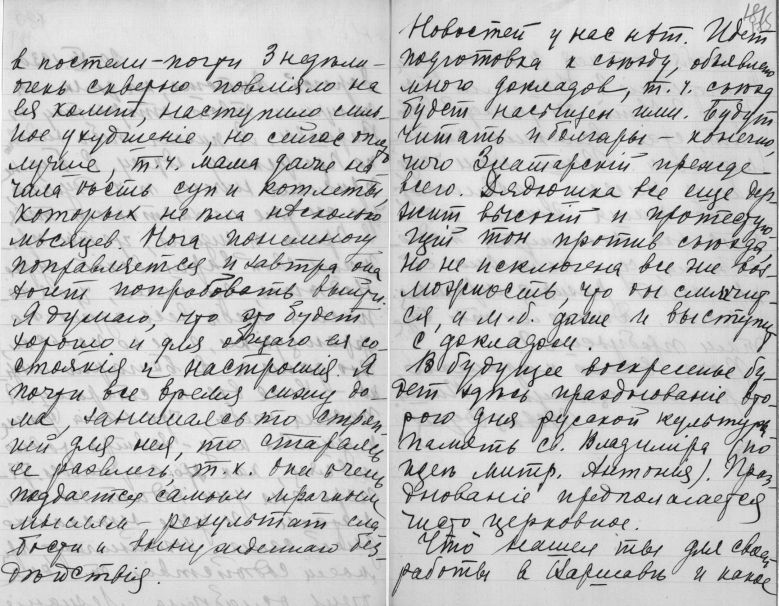 в постели – почти 3 недѣли –
очень скверно повлiяло на
ея колит, наступило силь-
ное ухудшенiе, но сейчас опять
лучше, т. ч. мама даже на-
чала ѣсть суп и котлеты,
которых не ѣла нѣсколько
мѣсяцев. Нога понемногу
поправляется и завтра она
хочет попробовать выйти.
Я думаю, что это будет
хорошо и для общаго ея со-
стоянiя и настроенiя. Я
почти все время сижу до-
ма, занимаясь то стряп-
ней для нея, то стараясь
ее развлечь, т. к. она очень
поддается самым мрачным
мыслям – результат сла-
бости и вынужденнаго без-
дѣйствiя.
185
Новостей у нас нѣт. Идет
подготовка к съѣзду, объявлено
много докладов, т. ч. съѣзд
будет насыщен ими. Будут
читать и болгары – конечно,
Златарскiй прежде
всего. Дядюшка все еще дер-
жит высокiй и протестую-
щiй тон против съѣзда,
но не исключена все же воз-
можность, что он смягчит-
ся, а м. б. даже и выступит
с докладом.
В будущее воскресенье бу-
дет здѣсь празднованiе вто-
рого дня русской культуры
память св. Владимiра (по
идеѣ митр. Антонiя). Праз-
днованiе предполагается
чисто церковное.
Что нашел ты для своей
работы в Варшавѣ и какое